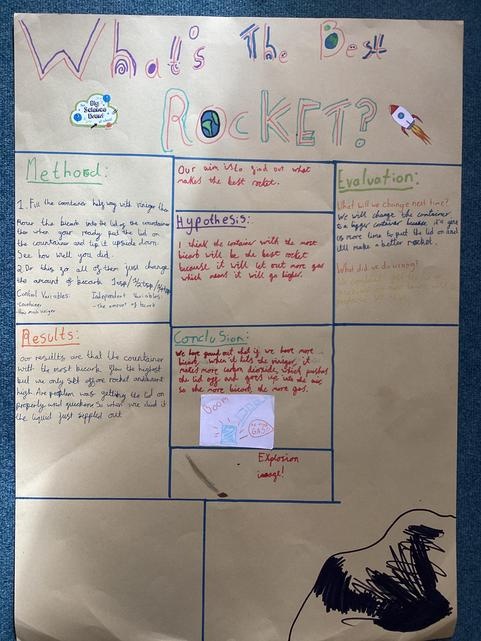 What's The Best
ROCKET?
Big
Science
Method:
1. Fill the containers half way with vinegar then
Now the bicarb into the lid of the countainer
then when your ready put the lid on
the countainer and tip it upside down
See how well you did.
2. Do this go all of them just change
the amount of bicarb
Control Variables:
-container
Independent Variables:
- the amount of bicarb
Our aim is to find out what
makes the best rocket.
Hypothesis:
I think the container with the most
bicarb will be the best rocket
because it will let out more gas
which means it will go higer.
Evaluation:
What will we change next time?
We will change the countainer
to a bigger container because it'll give
us more time to put the lid on and
it'll make a better rocket.
What did we do wrong?
Results:
our resultts are that the countainer
with the most bicarb, flew the highest
but we only set off one rocket and went
high. Are problem was getting the lid on
properly and quickens so when we did it
the liquid just sippled out
Conclusion:
We have found out that if we have more
bicarb when it hits the vinegar, it
makes more carbon dioxide, which pushes
the lid off and goes up into the air
so the more bicarb the more gas.
Boom
GAS!
Explosion
image!